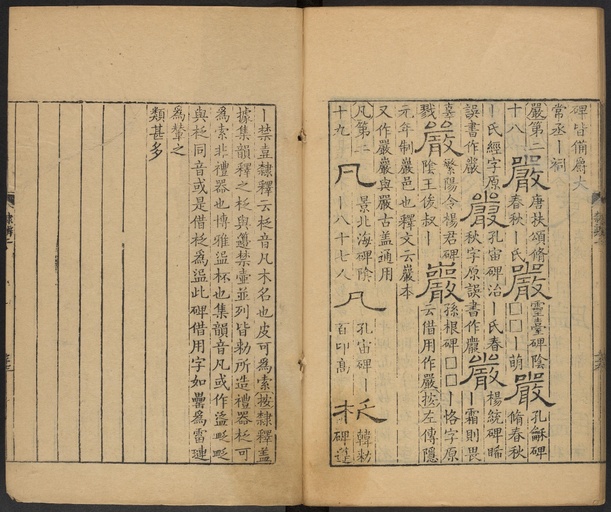 碑皆備爵大
常丞丨祠
嚴第二十八 嚴 唐扶頌脩春秋丨氏 嚴 靈臺碑陰□□丨萌 嚴 孔龢碑脩春秋
丨氏經字原誤書作嚴 嚴 孔宙碑治丨氏春秋字原誤書作嚴 嚴 楊統碑晞丨霜則畏
辜 繁陽令楊君碑 嚴 孫根碑□□丨恪字原
戮 嚴 陰王俠叔丨 云借用作嚴按左傳隱
元年制巖邑也釋文云巖本
又作嚴巖與嚴古蓋通用
凡第二十九 凡 景北海碑陰丨八十七人 凡 孔宙碑丨百卬高 柉 韓勑碑籩
丨禁壺隸釋云柉音凡木名也皮可為索按隸釋蓋
據集韻釋之柉與籩禁壺並列皆勑所造禮器柉可
為索非禮器也博雅盕杯也集韻音凡或作盕
與柉同音或是借柉為盕此碑借用字如罍為雷璉
為輦之
類甚多
隸辨二